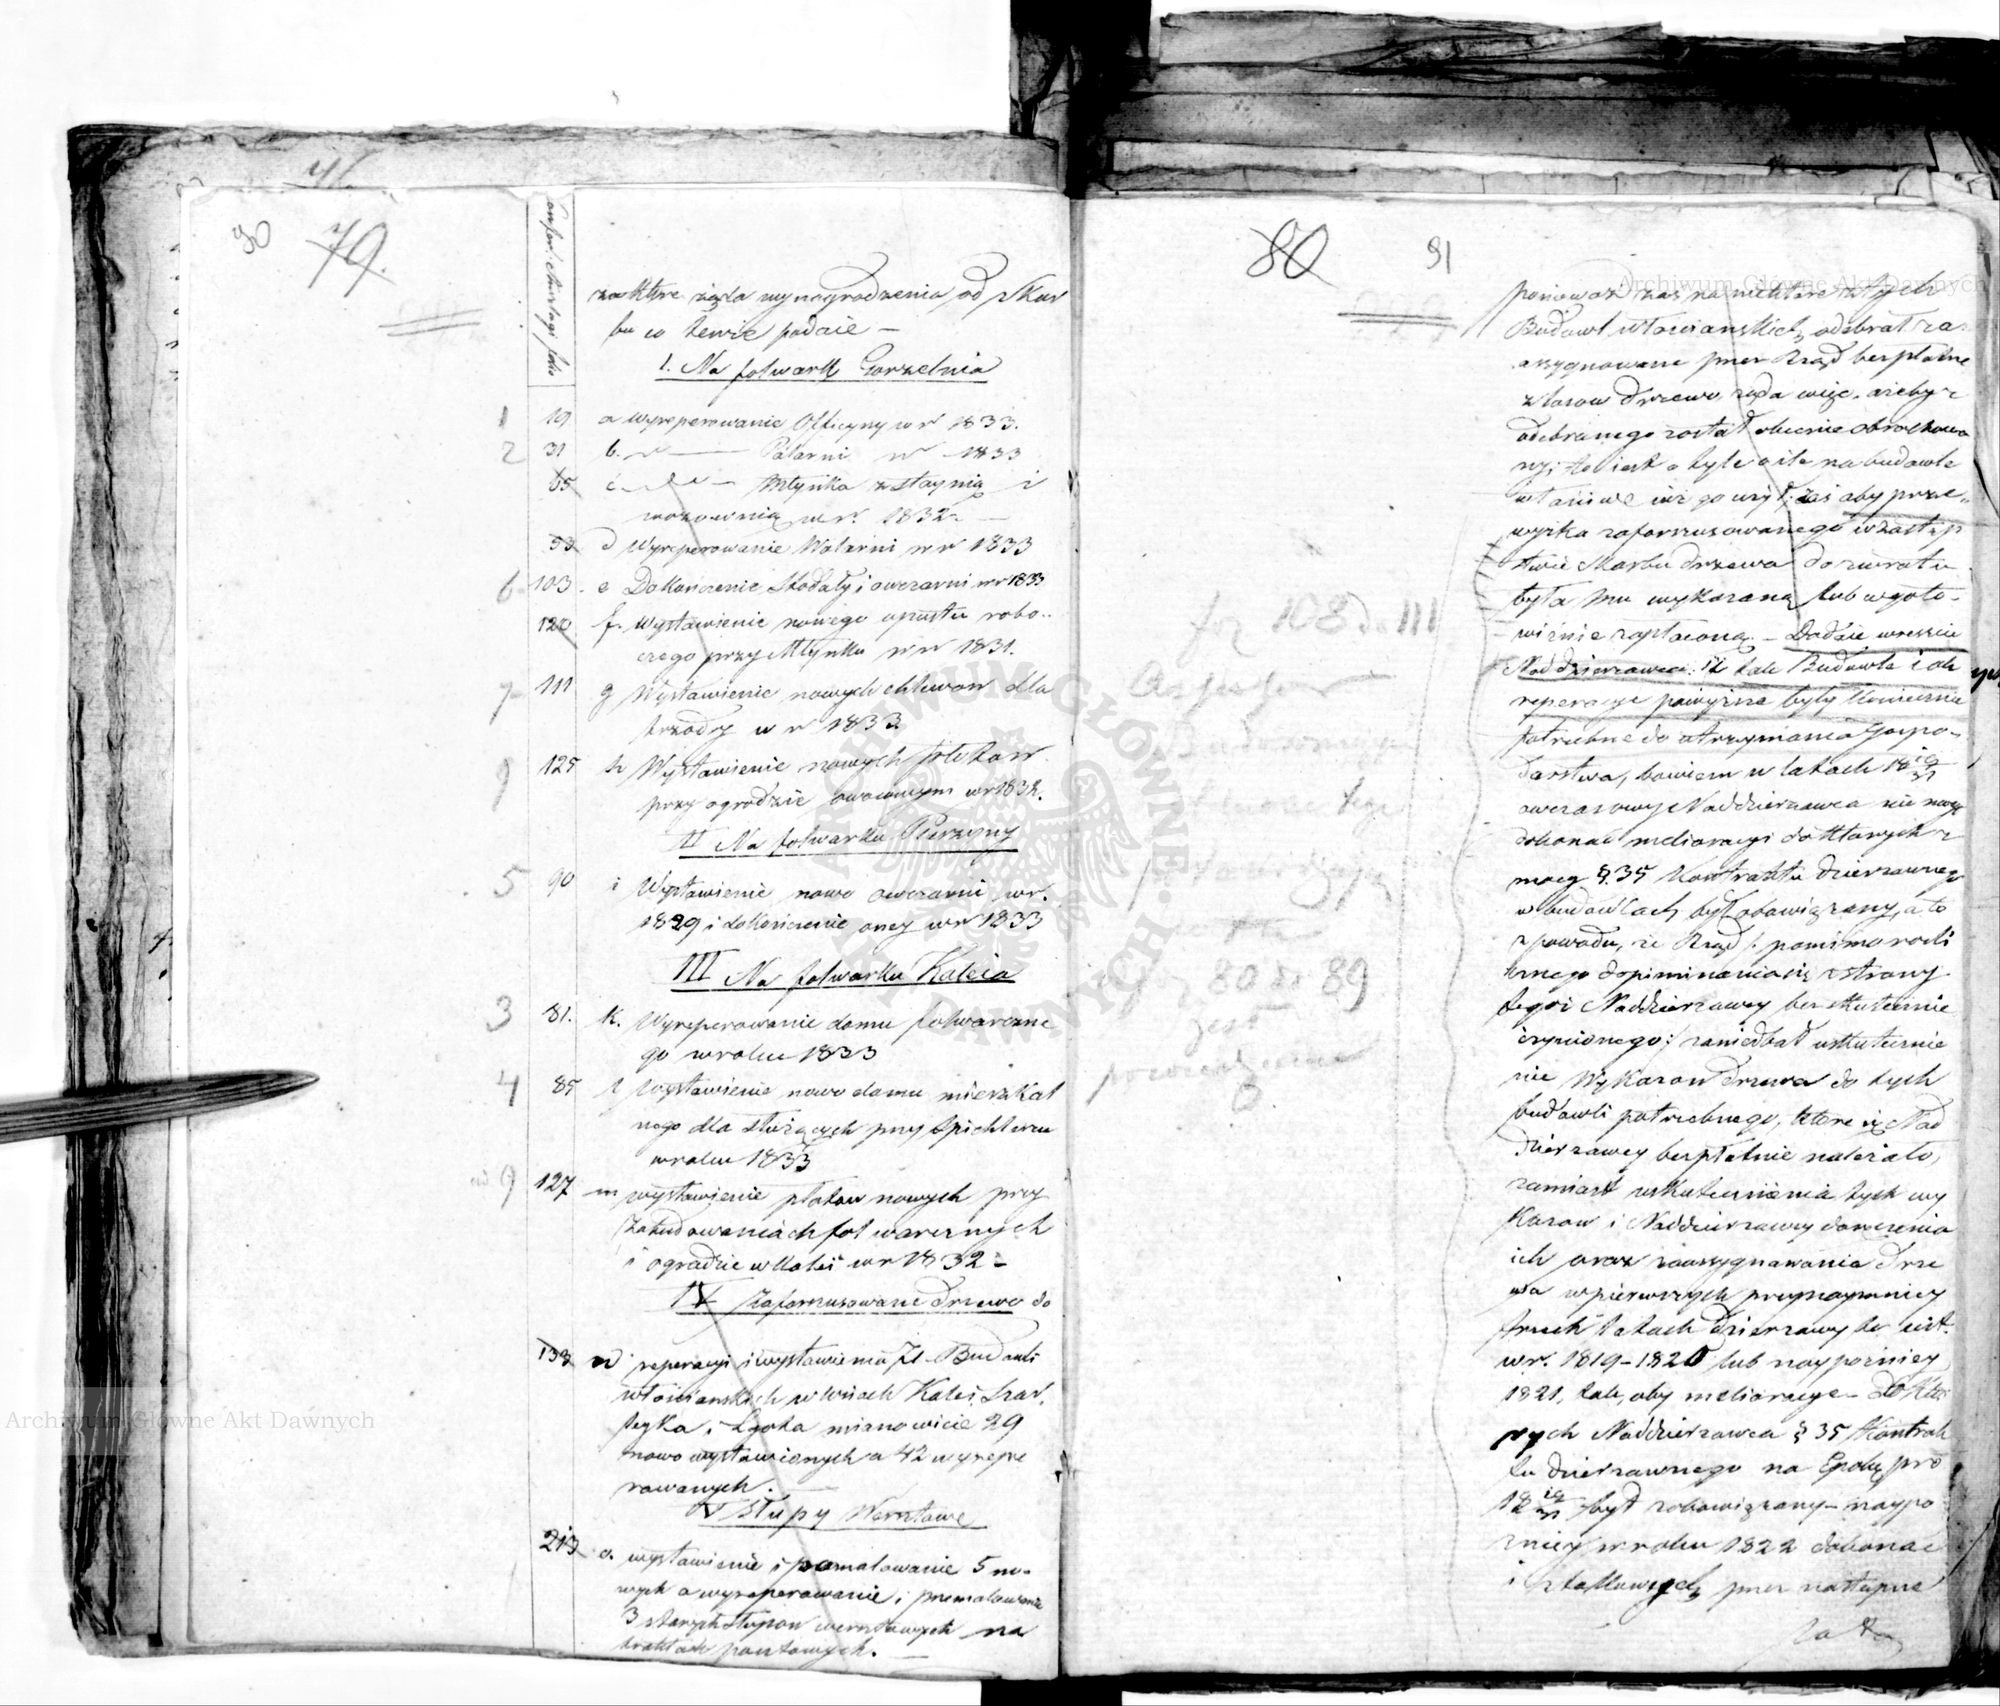 90 79.
za które żąda wynagrodzenia od Skar
bu co łewie podaie –
I. Na folwark Gorzelnia
1 19 a wyreperowanie Officyny w r 1833.
2 31 b. — Palarni w r 1833
65 c. — Młynka z staynią i
wozownią w r. 1832 –
53 d Wyreperowanie Wolarni w r 1833
6 103. e Dokończenie Stodoły i owczarni w r 1833
120 f. Wystawienie nowego upustu robo-
czego przy Młynku w r 1831.
7 111 g Wystawienie nowych chlewow dla
trzody w r 1833
9 125 h Wystawienie nowych płotków
przy ogrodzie owocowym w r 1832.
II Na folwarku
5 90 i Wystawienie nowo owczarni w r.
1829 i dokończenie oney w r 1833
III Na folwarku Kaleia
3 81. k. Wyreperowanie domu folwarczne
go w roku 1833
4 85 l wystawienie nowo domu mieszkal
nego dla służących przy Spichlerzu
w roku 1833
9 127 m wystawienie płotow nowych przy
Zabudowaniach folwarcznych
i ogrodzie w Kalei w r 1832 –
IV Zaforszusowane Drzewo do
133 n reperacyi i wystawienia 71 Budowli
włościanskich w wsiach Kalei, Szar
leyka i Lgota mianowicie 29
nowo wystawionych a 42 wyrepe
rowanych. –
V Słupy Worstowe
213 o. wystawienie i pomalowanie 5 no-
wych a wyreperowanie i premalowanie
3 starych słupow werstowych na
traktach pocztowych. –
80 91
fol 108 do 111
80 do 89
jest
ponieważ zaś na niektore z tych
Budowl włościanskich odebrał za-
asygnowane przez Rząd bezpłatne
z lasow Drzewo, żąda więc ażeby z
odebranego został obecnie obrachowa
ny, to iest o tyle o ile na budowle
właściwe iuż go użył, zaś aby prze-
wyżka zaforszusowanego w zastęp
stwie Skarbu drzewa do zwrotu
była mu wykazaną lub w goto-
wiźnie zapłaconą. – Dodaie wreszcie
Naddzierzawca: iż tak Budowle iak
reperacye powyższe były koniecznie
potrzebne do utrzymania Gospo-
darstwa, bowiem w latach 18 19/31
owczasowy Naddzierzawca nie mógł
dokonać melioracyi do ktorych z
mocy §. 35 Kontraktu dzierzawnego
w budowlach był obowiązany, a to
z powodu, że Rząd pomimo rocz
nego dopominania się z strony
tegoż Naddzierzawcy bezskutecznie
czynionego; zaniedbał uskutecznie
nie Wykazow drzewa do tych
budowli potrzebnego, ktore się Nad
dzierzawcy bezpłatnie należało,
zamiast uskutecznienia tych wy
kazow i Naddzierzawcy doręczenia
ich oraz zaasygnowania drze
wa w pierwszych przynaymniey
trzech latach dzierzawy to iest.
w r. 1819–1820 lub naypóźniey
1821, tak, aby melioracye – do któ
rych Naddzierzawca § 35 Kontrak
tu dzierzawnego na Epokę pro
18 19/31 był zobowiązany – naypo
źniey w roku 1822 dokonać
i z takowych przez następne